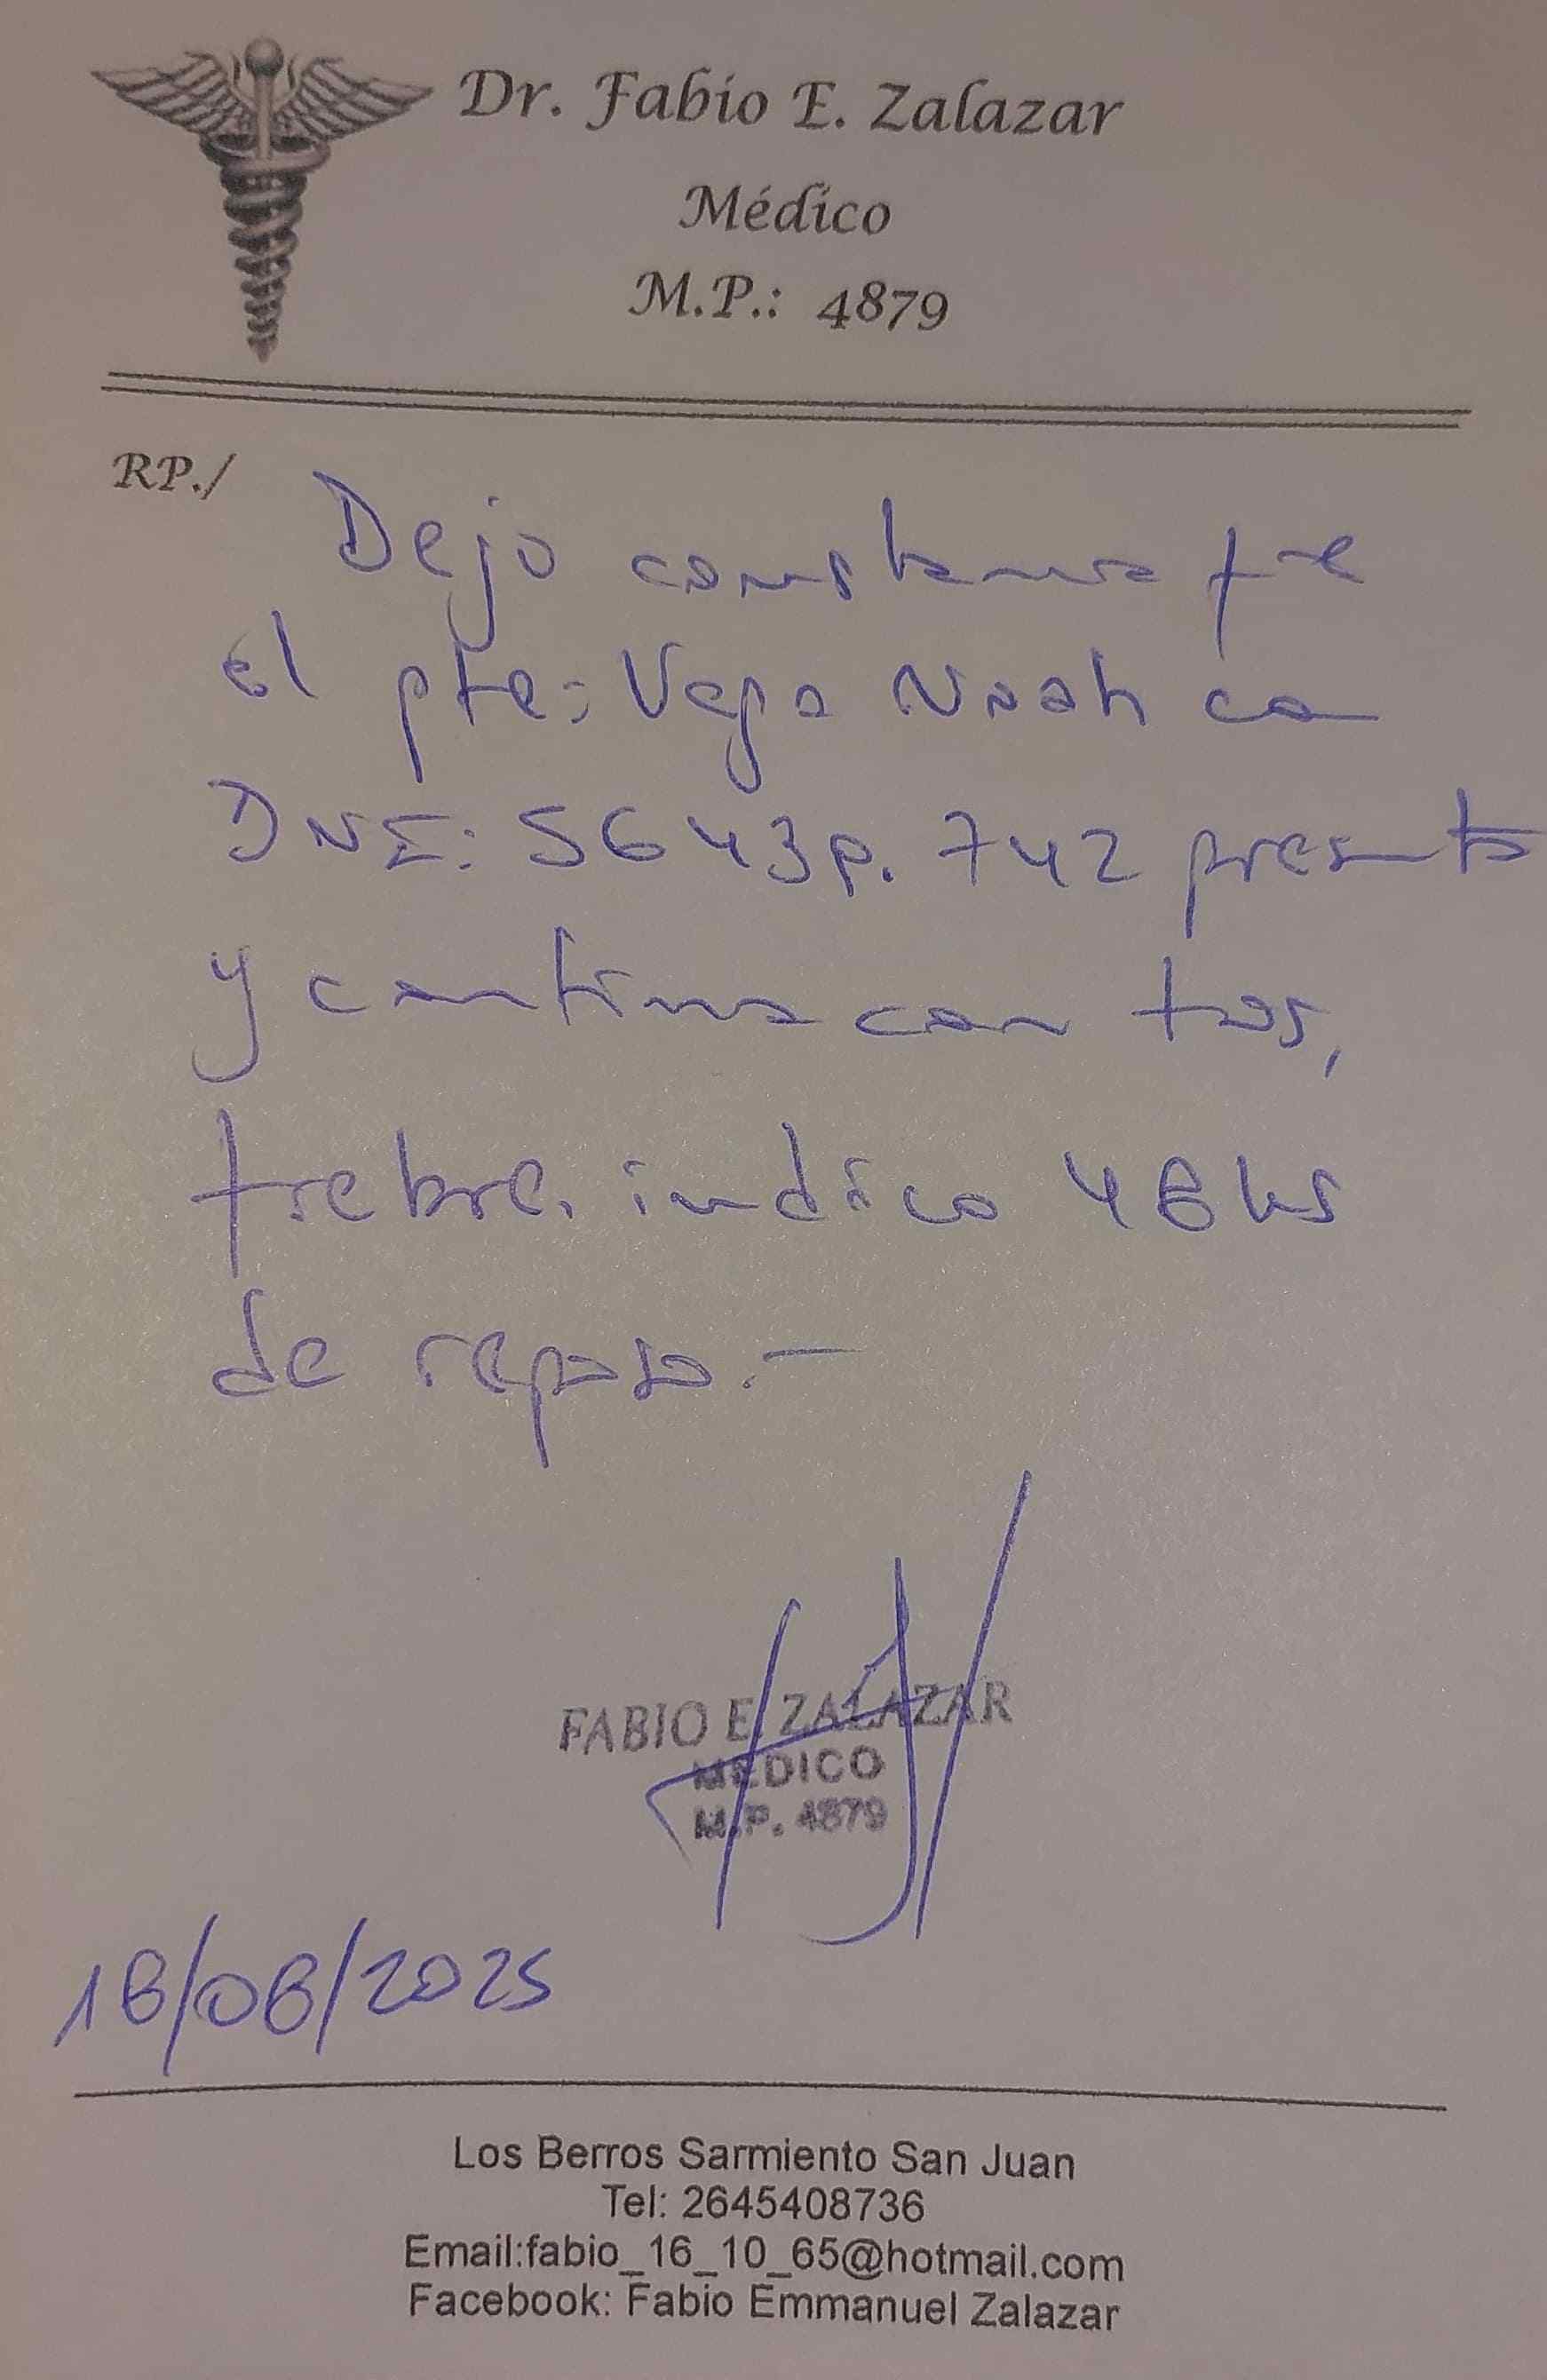 Dr. Fabio E. Zalazar
Médico
M.P.: 4879
RP./
Dejo constancia que
el pte: Vega Noah con
DNI: 56439.742 presenta
y continua con tos,
fiebre, indico 48 hs
de reposo.-
FABIO E. ZALAZAR
MEDICO
M.P. 4879
18/08/2025
Los Berros Sarmiento San Juan
Tel: 2645408736
Email:fabio_16_10_65@hotmail.com
Facebook: Fabio Emmanuel Zalazar